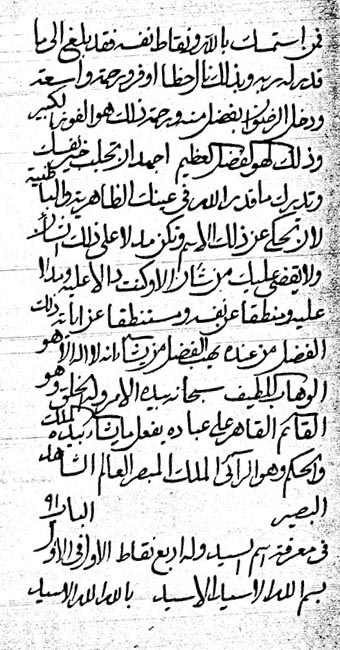 فمن استمسك بالله ونقاط نفسه فقد بلغ الی ما
قدر له ربه وبذلك نال حظا اوفر ورحمة واسعة
ودخل الرضوان بفضل منه ورحمة ذلك هو الفوز الكبير
وذلك لهو الفضل العظيم اجهد ان تجلب خير نفسك
وتدرك ما قدر الله في عينك الظاهرية والباطنية
لان تحكي عن ذلك الاسم وتكن مدلا على ذلك
ولا يقضى عليك من شأن الا وكنت دالا عليه ومدلا
عليه ومنطقا عن نفسه ومستنطقا عن اياته ذلك
الفضل من عنده يهب الفضل من يشاء انه لا اله الا هو
الوهاب اللطيف سبحانه بيده الامر والخلق وهو
القائم القاهر على عباده يفعل ما يشاء بيده الملك
والحكم وهو الرائي الملك المبصر العالم الشاهد
البصير الباب ٩١
في معرفة اسم السيد وله اربع نقاط الاول في الاول
بسم الله الاسيد الاسيد بالله الله الاسيد